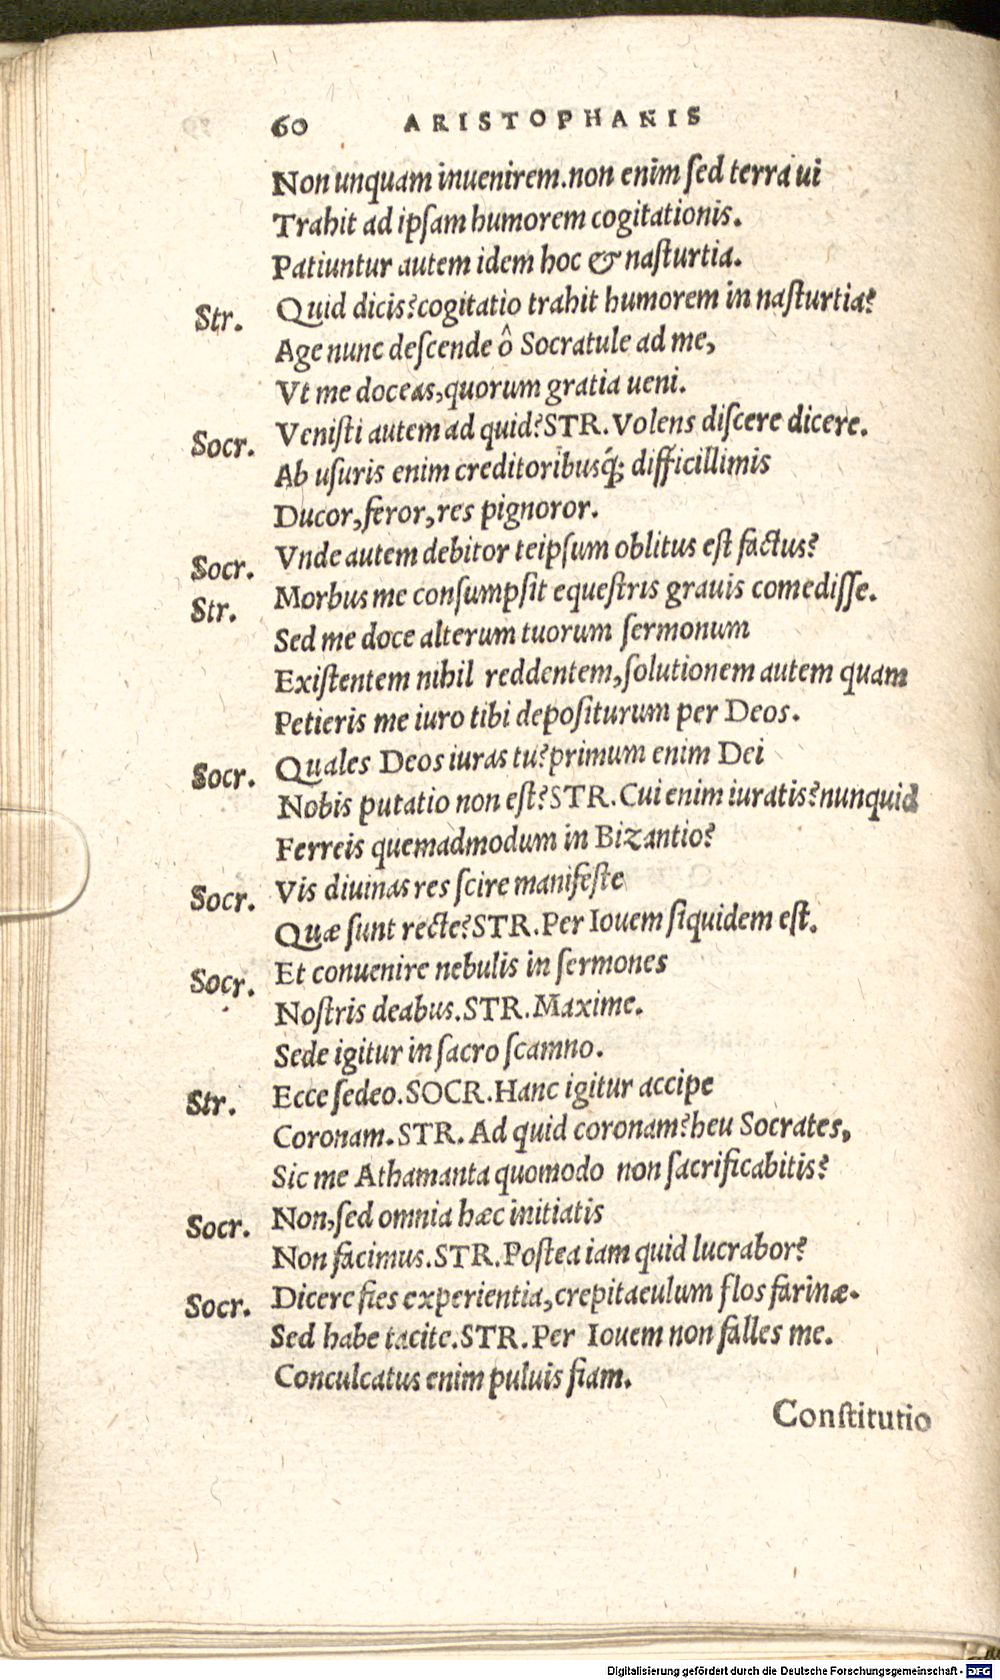 60 ARISTOPHANIS
Non unquam inuenirem.non enim sed terra ui
Trahit ad ipsam humorem cogitationis.
Patiuntur autem idem hoc & nasturtia.
Str. Quid dicis?cogitatio trahit humorem in nasturtia?
Age nunc descende ô Socratule ad me,
Vt me doceas,quorum gratia ueni.
Socr. Venisti autem ad quid?STR.Volens discere dicere.
Ab usuris enim creditoribusq́; difficillimis
Ducor,feror,res pignoror.
Socr. Vnde autem debitor teipsum oblitus est factus?
Str. Morbus me consumpsit equestris grauis comedisse.
Sed me doce alterum tuorum sermonum
Existentem nihil reddentem,solutionem autem quam
Petieris me iuro tibi depositurum per Deos.
Socr. Quales Deos iuras tu?primum enim Dei
Nobis putatio non est?STR.Cui enim iuratis?nunquid
Ferreis quemadmodum in Bizantio?
Socr. Vis diuinas res scire manifeste
Quæ sunt recte?STR.Per Iouem siquidem est.
Socr. Et conuenire nebulis in sermones
Nostris deabus.STR.Maxime.
Sede igitur in sacro scamno.
Str. Ecce sedeo.SOCR.Hanc igitur accipe
Coronam.STR. Ad quid coronam?heu Socrates,
Sic me Athamanta quomodo non sacrificabitis?
Socr. Non,sed omnia hæc initiatis
Non facimus.STR.Postea iam quid lucrabor?
Socr. Dicere fies experientia,crepitaeulum flos farinæ.
Sed habe tacite.STR.Per Iouem non falles me.
Conculcatus enim puluis fiam.
Constitutio
Digitalisierung gefördert durch die Deutsche Forschungsgemeinschaft - DFG